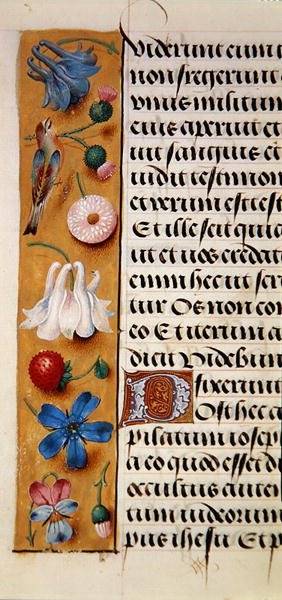 viderunt eum i
non fregerunt
unus militum
eius aperuit et
uit sanguis et
vidit testimon
et verum est test
Et ille scit quia
ut et vos credat
enim hec ut scri
tur Os non com
eo Et iterum a
dicit Videbun
fixerunt
Post hec a
pilatum ioseph
a eo quod esset di
occultus autem
tum iudeorum
pus ihesu Et p